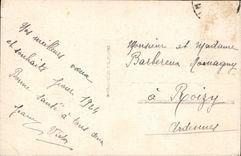 Nos meilleurs voeux
et souhaits pour 1924
Bonne Santé à tous deux
Monsieur et Madame
Barbereux Momagny
à Roizy
Ardennes